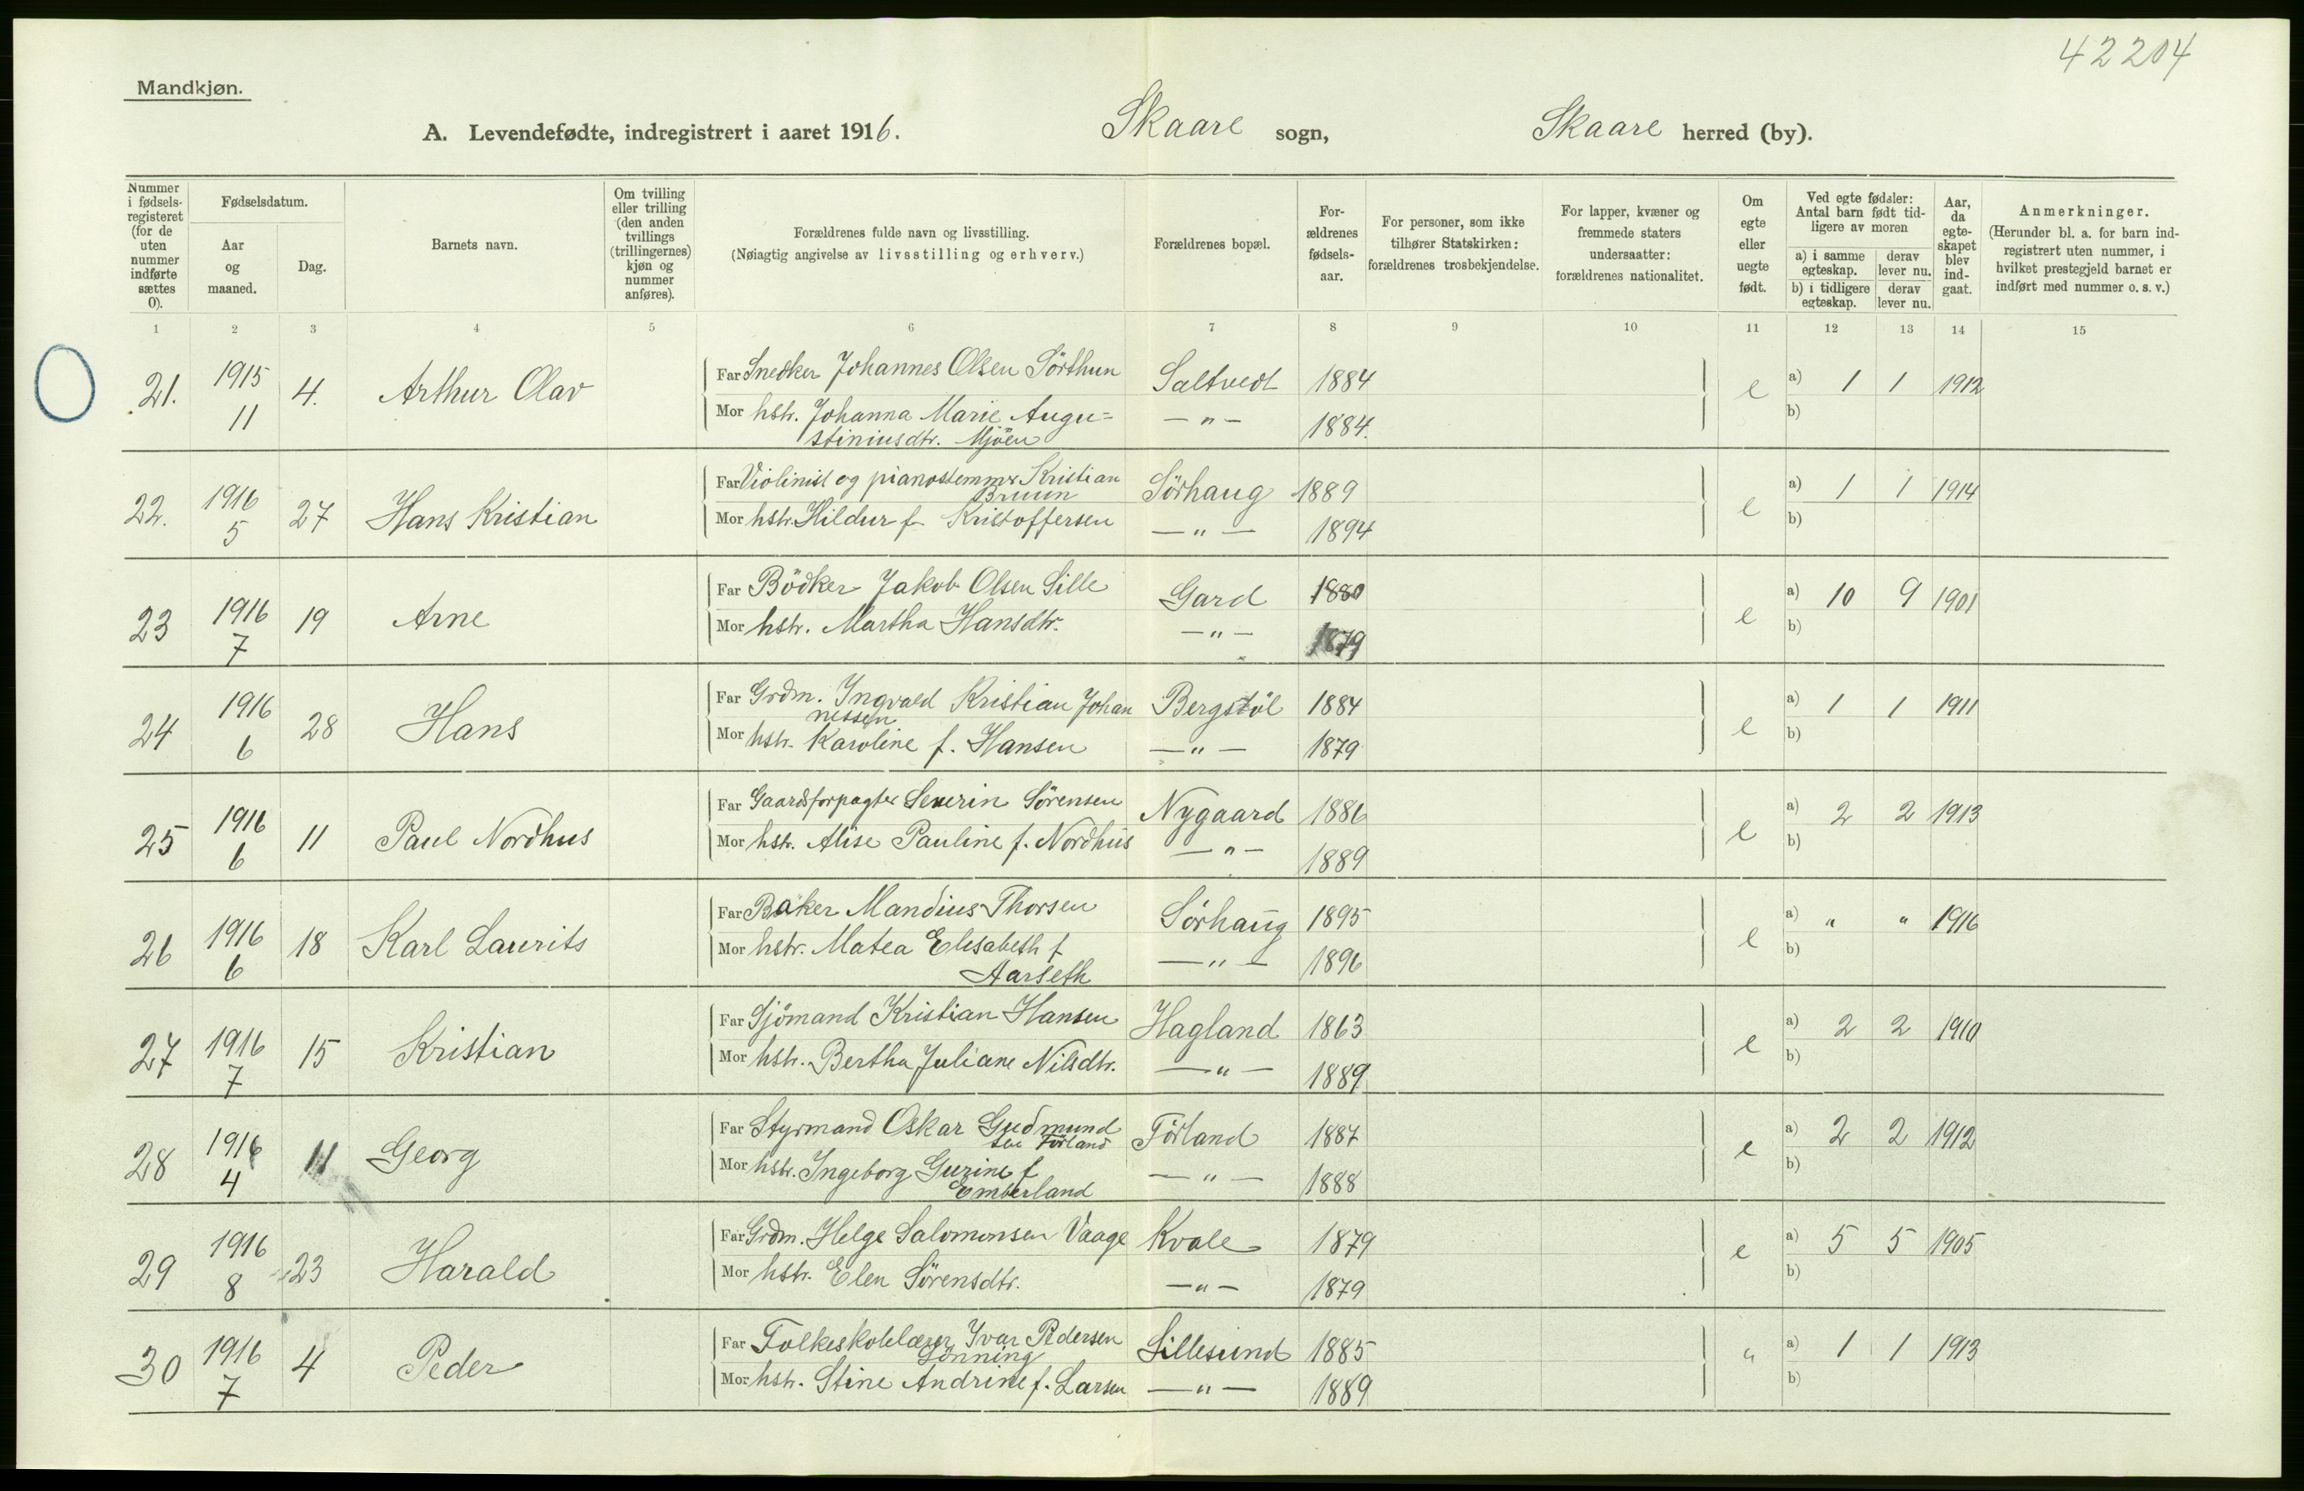 42204
Mandkjøn.
A. Levendefødte, indregistrert i aaret 1916. Skaare sogn, Skaare herred (by).
Nummer i fødselsregisteret (for de uten nummer indførte sættes 0).
Fødselsdatum.
Aar og maaned.
Dag.
Barnets navn.
Om tvilling eller trilling (den anden tvillings (trillingernes) kjøn og nummer anføres).
Forældrenes fulde navn og livsstilling.
(Nøiagtig angivelse av livsstilling og erhverv.)
Forældrenes bopæl.
Forældrenes fødselsaar.
For personer, som ikke tilhører Statskirken: forældrenes trosbekjendelse.
For lapper, kvæner og fremmede staters undersaatter: forældrenes nationalitet.
Om egte eller uegte født.
Ved egte fødsler: Antal barn født tidligere av moren
a) i samme egteskap.
derav lever nu.
b) i tidligere egteskap.
derav lever nu.
Aar, da egteskapet blev indgaat.
Anmerkninger.
(Herunder bl. a. for barn indregistrert uten nummer, i hvilket prestegjeld barnet er indført med nummer o. s. v.)
1 2 3 4 5 6 7 8 9 10 11 12 13 14 15
21. 1915 11 4. Arthur Olav
Far Snedker Johannes Olsen Sörthun Saltvedt 1884 e a) 1 1 1912
Mor hstr. Johanna Marie Augu= — " — 1884. b)
stiniusdtr. Mjöen
22. 1916 5 27 Hans Kristian
Far Violinist og pianostemmer Kristian Sörhaug 1889 e a) 1 1 1914
Bruun
Mor hstr. Hildur f. Kristoffersen — " — 1894 b)
23 1916 7 19 Arne
Far Bödker Jakob Olsen Lille Gard 1880 e a) 10 9 1901
Mor hstr. Martha Hansdtr. — " — 1879 b)
24 1916 6 28 Hans
Far Grdm. Ingvald Kristian Johan Bergstöl 1884 e a) 1 1 1911
nessen
Mor hstr. Karoline f. Hansen — " — 1879 b)
25 1916 6 11 Paul Nordhus
Far Gaardsforpagter Severin Sörensen Nygaard 1886 e a) 2 2 1913
Mor hstr. Alise Pauline f. Nordhus — " — 1889 b)
26 1916 6 18 Karl Laurits
Far Baker Mandius Thorsen Sörhaug 1895 e a) " " 1916
Mor hstr. Matea Elisabeth f — " — 1896 b)
Aarseth
27 1916 7 15 Kristian
Far Sjömand Kristian Hansen Hagland 1863 e a) 2 2 1910
Mor hstr. Bertha Juliane Nilsdtr. — " — 1889 b)
28 1916 4 11 Georg
Far Styrmand Oskar Gudmund Förland 1887 e a) 2 2 1912
sen Förland
Mor hstr. Ingeborg Gurine f — " — 1888 b)
Emberland
29 1916 8 23 Harald
Far Grdm. Helge Salomonsen Vaage Kvale 1879 e a) 5 5 1905
Mor hstr. Elen Sörensdtr. — " — 1879 b)
30 1916 7 4 Peder
Far Folkeskolelærer Ivar Pedersen Lillesund 1885 " a) 1 1 1913
Lönning
Mor hstr. Stine Andrine f. Larsen — " — 1889 b)